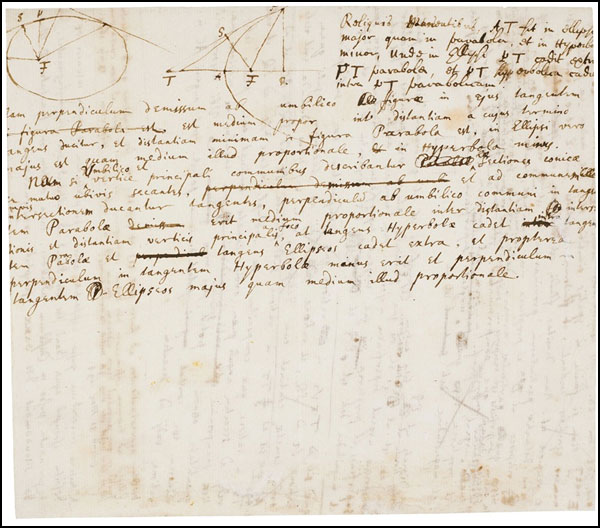 S P
F
S
T A F R
Reliquis AT sit in Ellipsi
major quam in parabola et in Hyperbola
minor, unde in Ellipsi PT cadet extra
PT parabolæ, et PT hyperbolæ cadet
intra PT parabolicam.
perpendiculum demissum ab umbilico figuræ in ejus tangentem
si figura Parabola est est medium propor int distantiam a cujus termino
tangens ducitur, et distantiam minimam si figura Parabola est, in Ellipsi vero
majus est quam medium illud proportionale, & in Hyperbola minus.
Nam si umbilico et vertice principali communibus describantur Sectiones conicæ
ubivis secantes, perpendiculum demissum ab et ad communem
intersectionem ducantur tangentes, perpendiculum ab umbilico communi in tangen
tem Parabolæ demissum erit medium proportionale inter distantiam inters
tionis et distantiam verticis principalis, at tangens Hyperbolæ cadet intra tangen
tem Parabolæ et tangens Ellipseos cadet extra, et propterea
perpendiculum in tangentem Hyperbolæ minus erit et perpendiculum
tangentem Ellipseos majus quam medium illud proportionale.